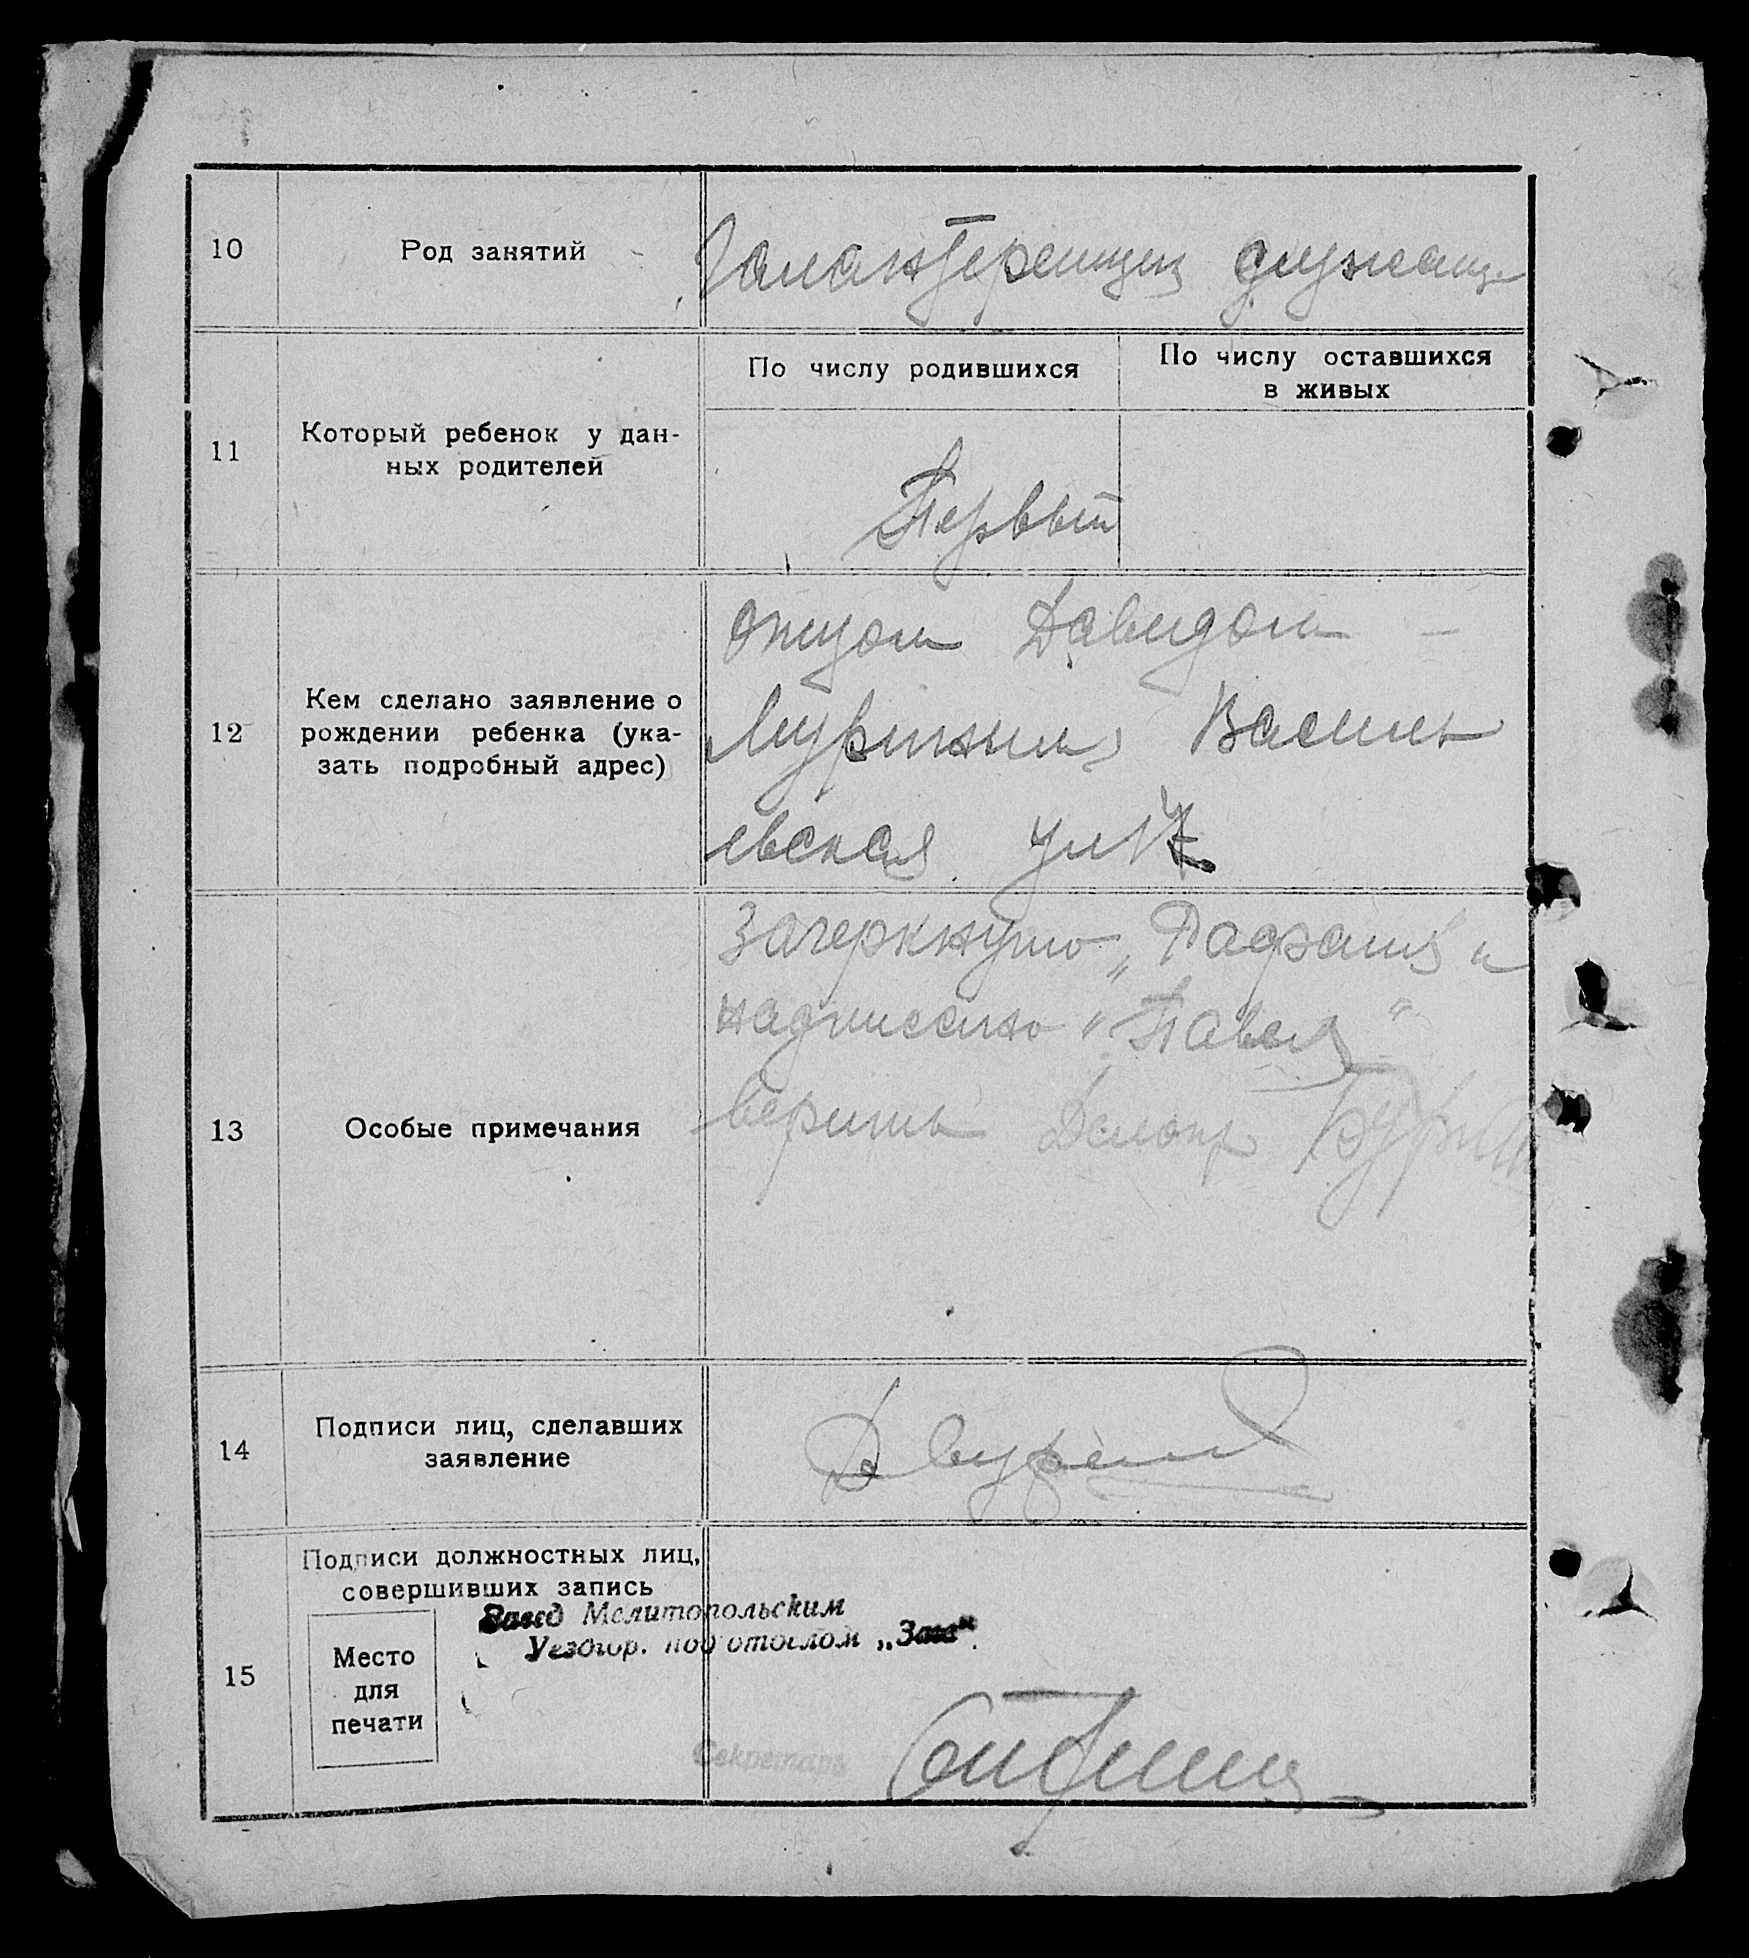 10
Род занятий
Галантерейщик служащ.
11
Который ребенок у дан-
ных родителей
По числу родившихся
По числу оставшихся
в живых
Первый
12
Кем сделано заявление о
рождении ребенка (ука-
зать подробный адрес)
отцом Давидом —
Василь
евская ул 17
13
Особые примечания
Зачеркнуто „
надписано "Павел"
верить
14
Подписи лиц, сделавших
заявление
15
Подписи должностных лиц,
совершивших запись
Место
для
печати
Завед Мелитопольским
Уездгор. под'отделом „Загс".
Секретарь